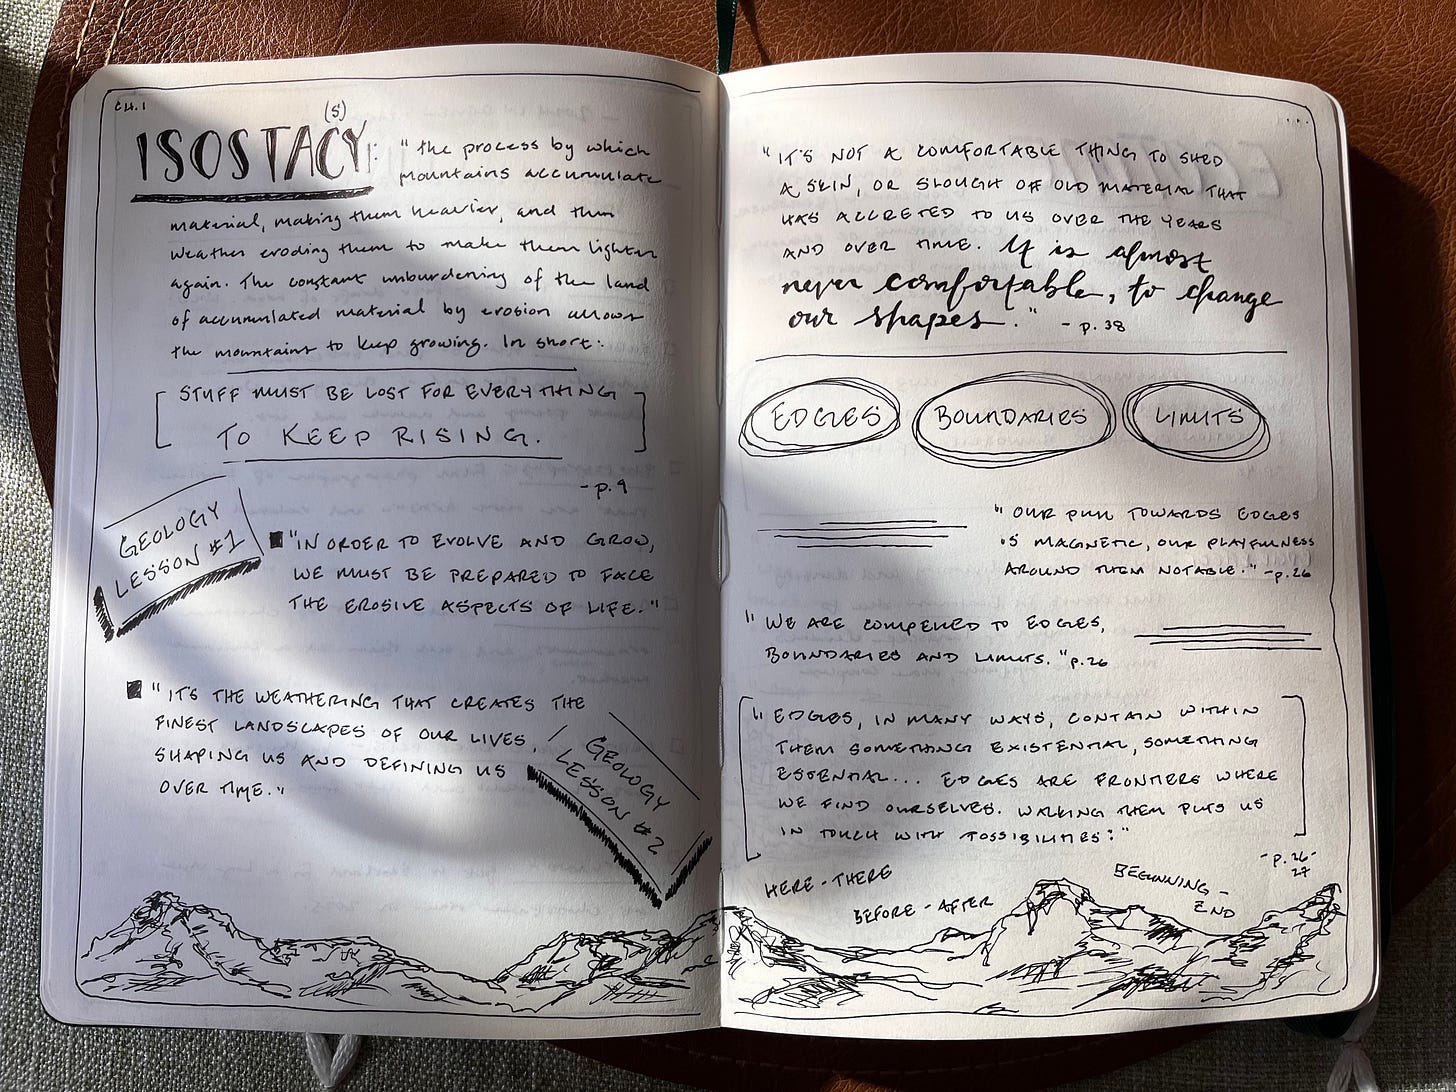 CH. 1
(S)
ISOSTACY: "the process by which
mountains accumulate
material, making them heavier, and then
weather eroding them to make them lighter
again. The constant unburdening of the land
of accumulated material by erosion allows
the mountains to keep growing. In short:
STUFF MUST BE LOST FOR EVERYTHING
TO KEEP RISING.
- p. 9
GEOLOGY
LESSON #1
"IN ORDER TO EVOLVE AND GROW,
WE MUST BE PREPARED TO FACE
THE EROSIVE ASPECTS OF LIFE."
"IT'S THE WEATHERING THAT CREATES THE
FINEST LANDSCAPES OF OUR LIVES,
SHAPING US AND DEFINING US
OVER TIME."
GEOLOGY
LESSON #2
"IT'S NOT A COMFORTABLE THING TO SHED
A SKIN, OR SLOUGH OFF OLD MATERIAL THAT
HAS ACCRETED TO US OVER THE YEARS
AND OVER TIME. It is almost
never comfortable, to change
our shapes." - p. 38
EDGES BOUNDARIES LIMITS
"OUR PULL TOWARDS EDGES
IS MAGNETIC, OUR PLAYFULNESS
AROUND THEM NOTABLE." - p. 26
"WE ARE COMPELLED TO EDGES,
BOUNDARIES AND LIMITS." p. 26
"EDGES, IN MANY WAYS, CONTAIN WITHIN
THEM SOMETHING EXISTENTIAL, SOMETHING
ESSENTIAL... EDGES ARE FRONTIERS WHERE
WE FIND OURSELVES. WALKING THEM PUTS US
IN TOUCH WITH POSSIBILITIES:"
- p. 26-
27
HERE - THERE
BEFORE - AFTER
BEGINNING -
END